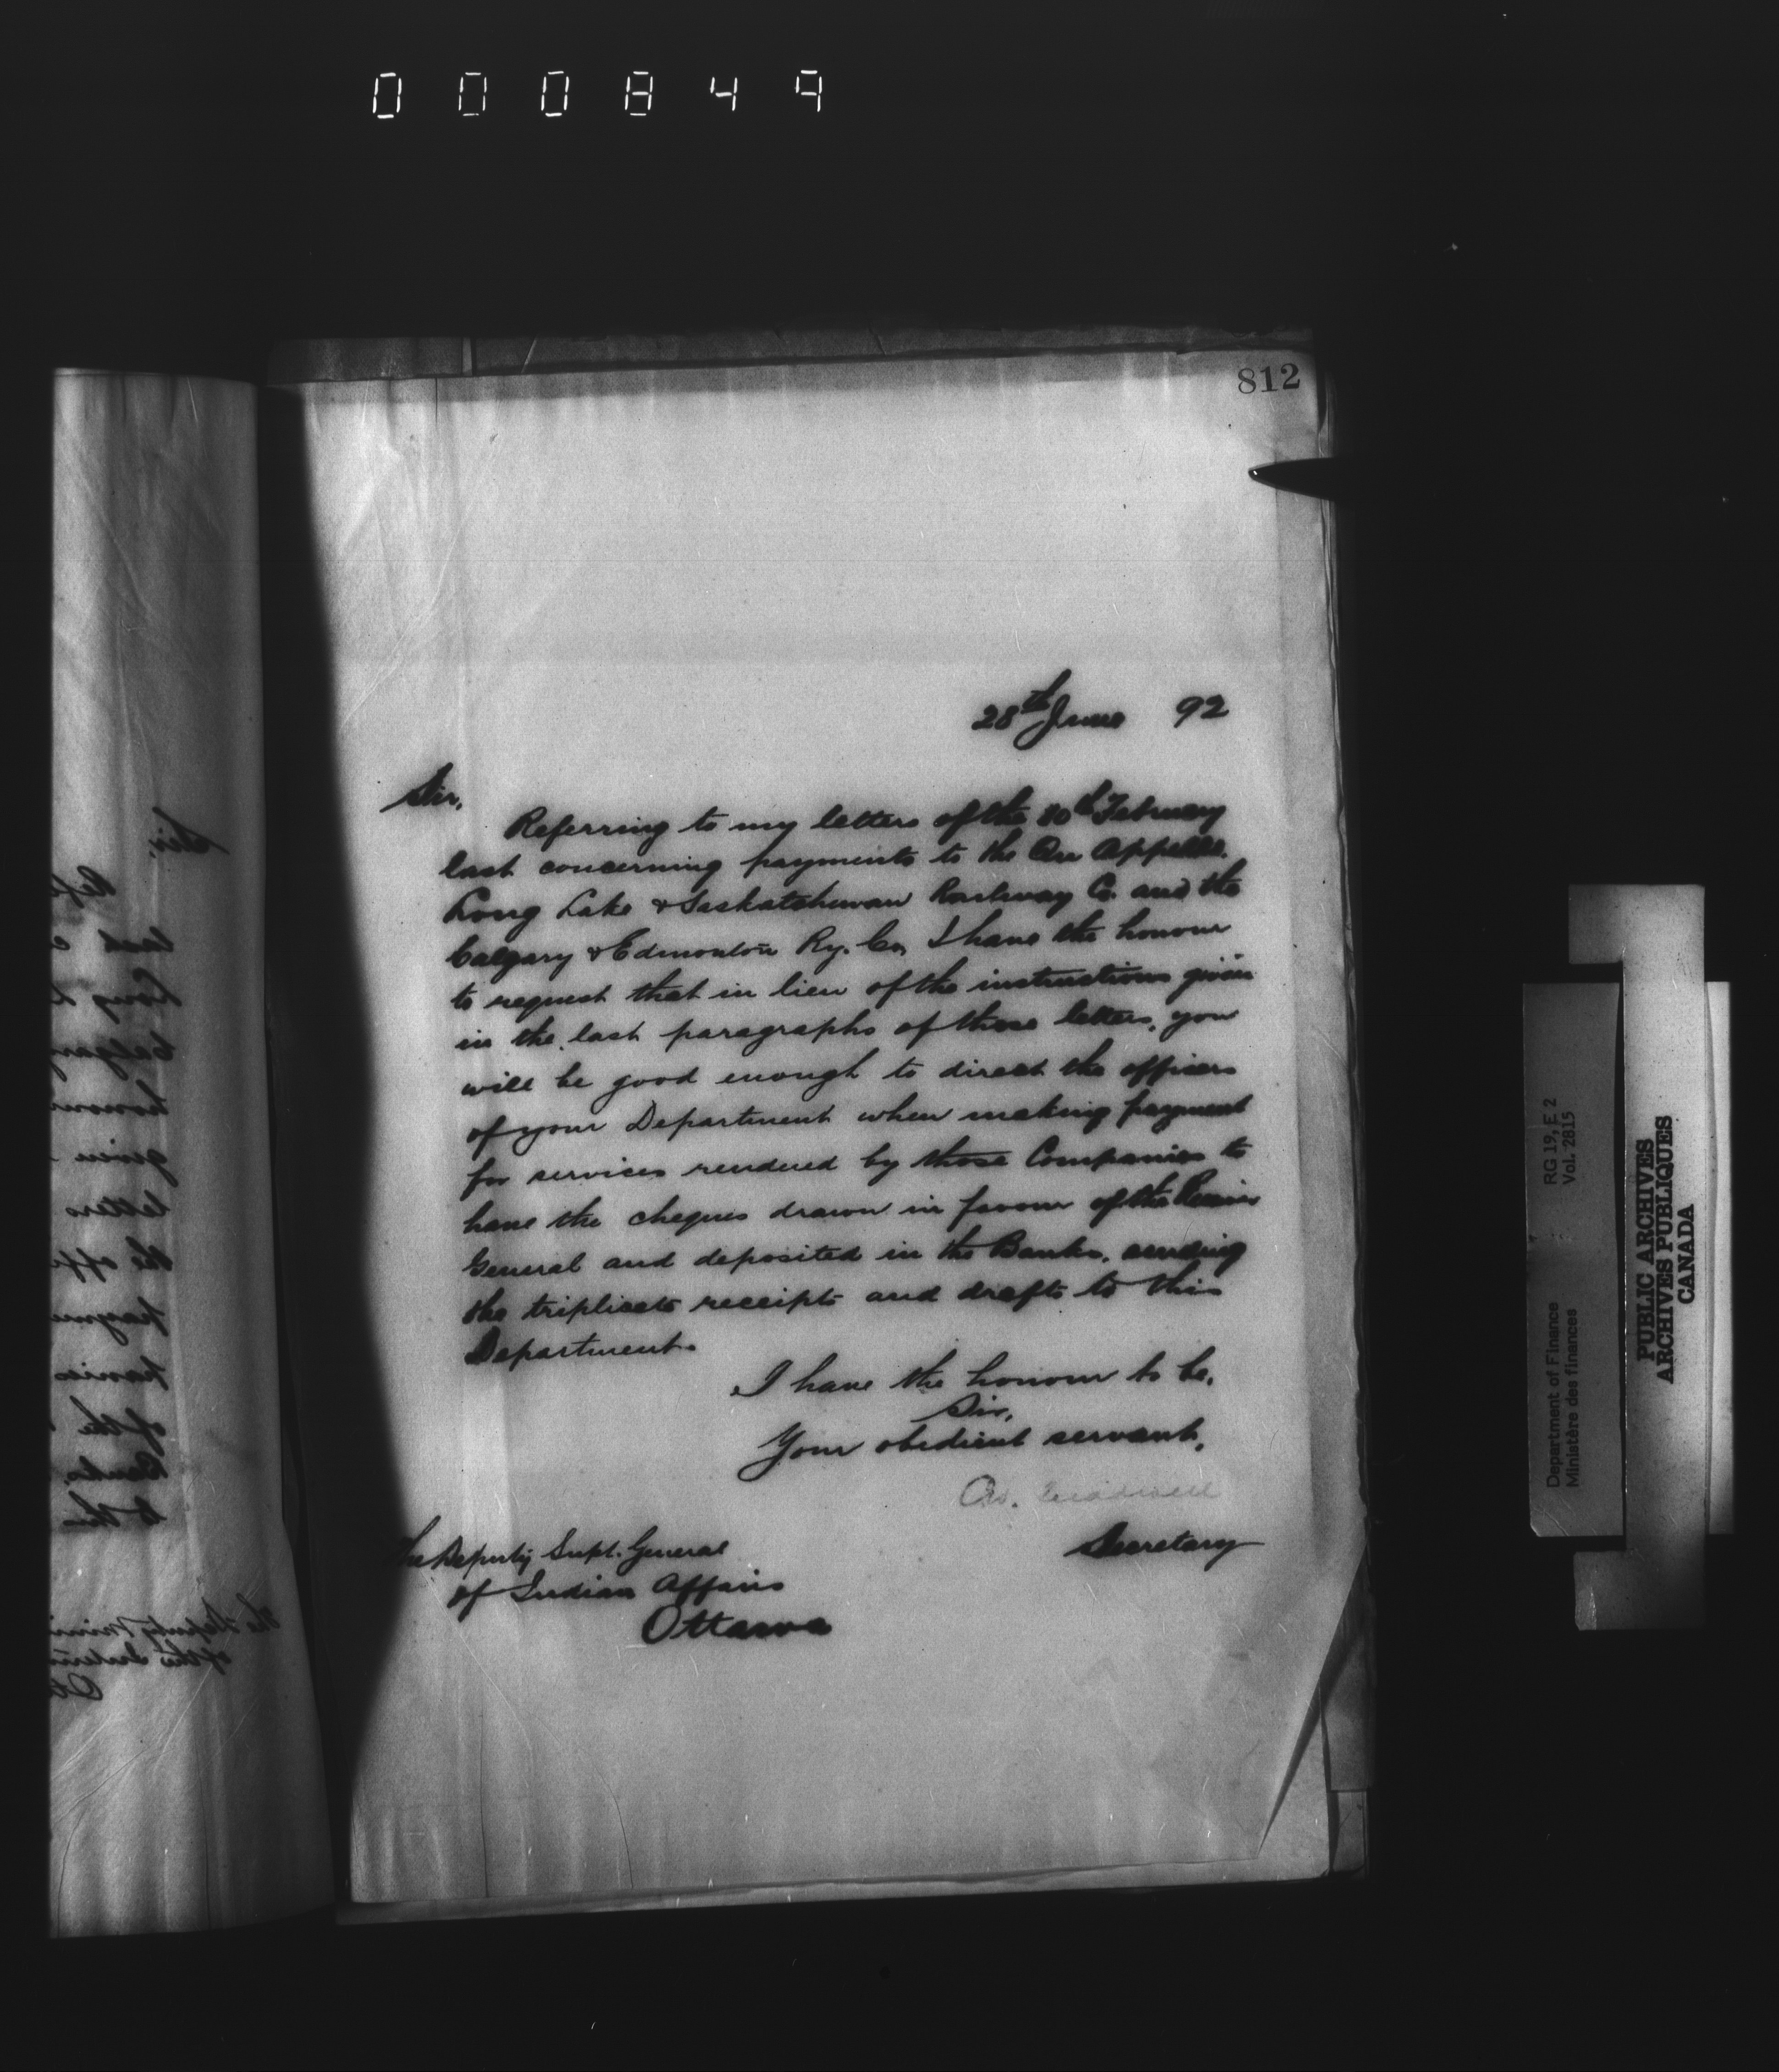 000849
812
28th June 92
Sir,
Referring to my letters of the 10th February
last concerning payments to the Qu Appelle,
Long Lake & Saskatchewan Railway Co. and the
Calgary & Edmonton Ry. Co, I have the honour
to request that in lieu of the instructions given
in the last paragraphs of those letters, you
will be good enough to direct the officers
of your Department when making payment
for services rendered by those Companies to
have the cheques drawn in favour of the Receiver
General and deposited in the Banks, sending
the triplicate receipts and drafts to this
Department.
I have the honour to be,
Sir,
Your obedient servant,
Secretary
The Deputy Supt. General
of Indian Affairs
Ottawa
Department of Finance RG 19, E 2
Ministère des finances Vol. 2815
PUBLIC ARCHIVES
ARCHIVES PUBLIQUES
CANADA